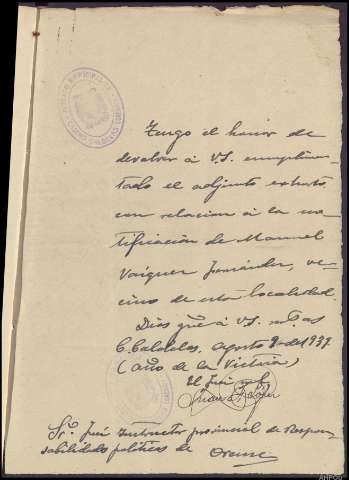 Tengo el honor de
devolver á V.S. cumplimen-
tado el adjunto extracto
con relacion á la no-
tificación de Manuel
Vazquez Fernández, ve-
cino de esta localidad.
Dios gue á V.S. ms. as
C. Caldelas, Agosto 9 de 1939
(año de la Victoria)
El Juez
Sr. Juez Instructor provincial de Respon-
sabilidades políticas de Orense
AHPOU